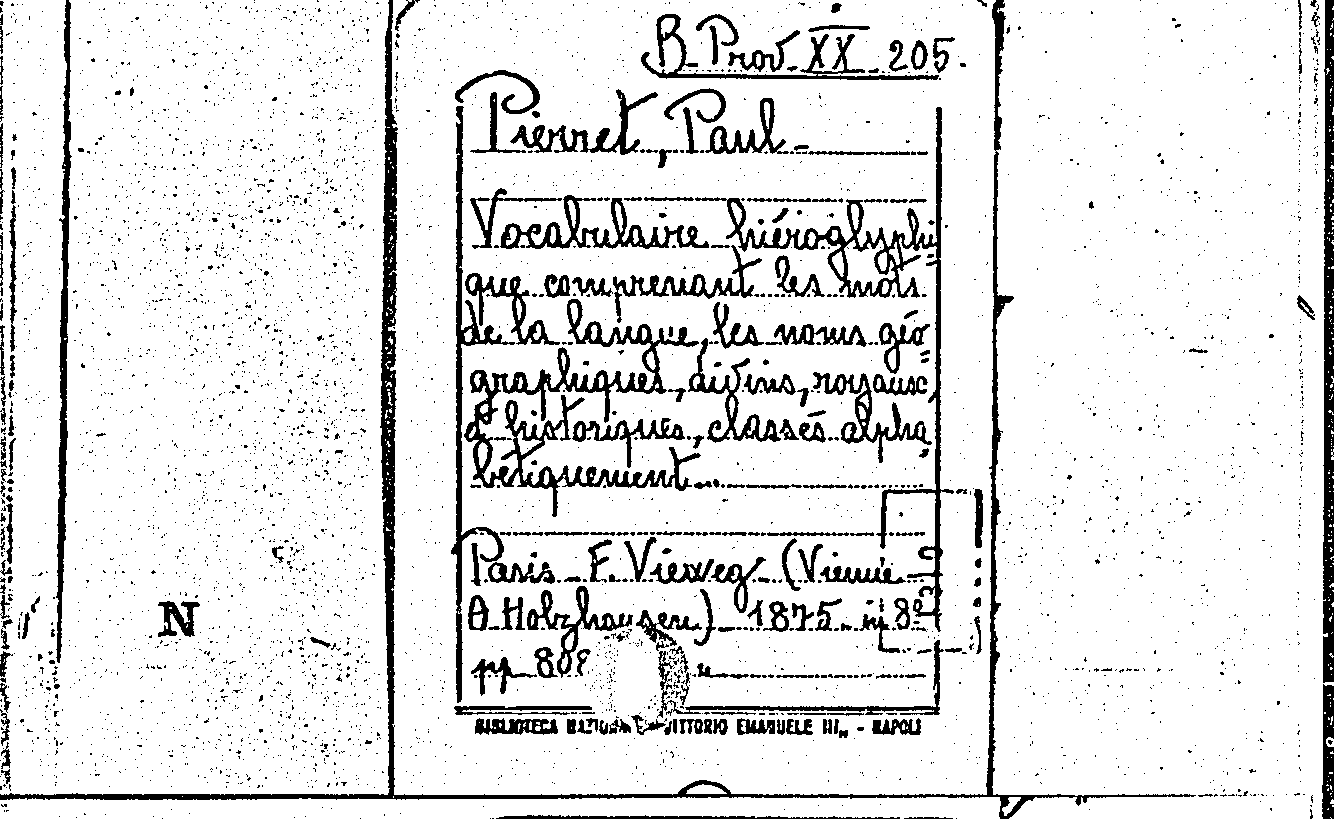 B. Prov. XX. 205.
Pierret, Paul -
Vocabulaire hiéroglyphi=
que comprenant les mots
de la langue, les noms géo=
graphiques, divins, royaux,
& historiques, classés alpha=
bétiquement...
Paris - F. Vieweg - (Vienne
A Holzhausen) - 1875 - in 8º
N
pp 808
BIBLIOTECA VITTORIO EMANUELE III„ - NAPOLI